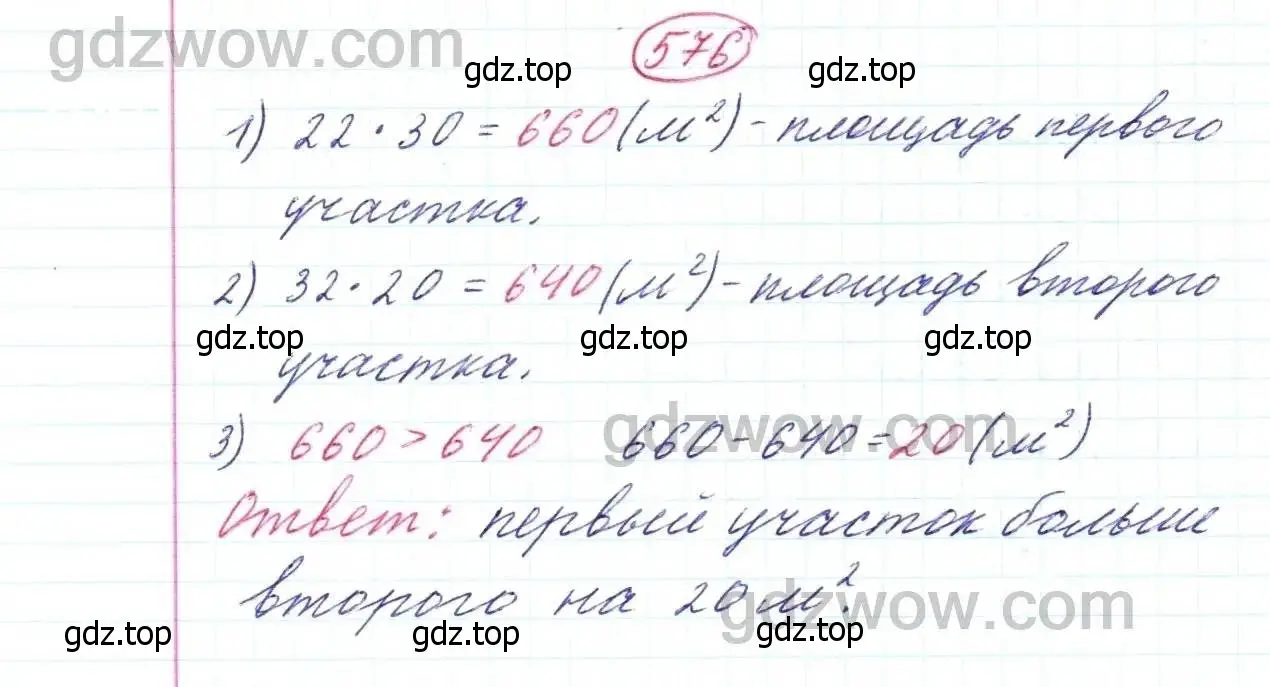 gdzwow.com
576
gdz.top gdz.top
1) 22 · 30 = 660 (м²) - площадь первого
участка.
2) 32 · 20 = 640 (м²) - площадь второго
gdz.top gdz.top gdz.top
участка.
gdzwow.com
3) 660 > 640 660 - 640 = 20 (м²)
Ответ: первый участок больше
второго на 20 м².
gdzwow.com
gdz.top gdz.top gdz.top